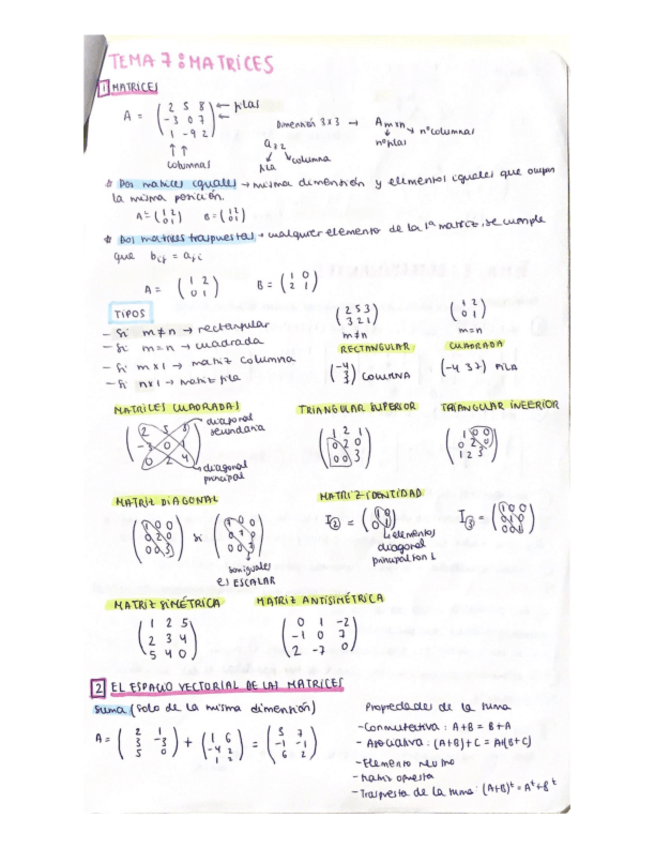 TEMA 7: MATRICES
1 MATRICES
A = ( 2 5 8 ← filas
-3 0 7 ←
1 -9 2 )
↑ ↑
columnas
Dimensión 3x3 → A m×n → nº columnas
nº filas
columna
fila
* Dos matrices iguales → misma dimensión y elementos iguales que ocupan
la misma posición.
A = ( 1 2
0 1 ) B = ( 1 2
0 1 )
* Dos matrices traspuestas → cualquier elemento de la 1ª matriz, se cumple
que bij = aji
A = ( 1 2
0 1 ) B = ( 1 0
2 1 )
TIPOS
- Si m ≠ n → rectangular
- Si m = n → cuadrada
- Si m x 1 → matriz columna
- Si n x 1 → matriz fila
( 2 5 3
3 2 1 )
m ≠ n
RECTANGULAR
( 1 2
0 1 )
m = n
CUADRADA
( -4
3
) COLUMNA
( -4 3 7 ) FILA
MATRICES CUADRADAS
diagonal
secundaria
diagonal
principal
TRIANGULAR SUPERIOR
( 1 2 1
0 2 0
0 0 3 )
TRIANGULAR INFERIOR
( 1 0 0
0 2 0
1 2 3 )
MATRIZ DIAGONAL
( 1 0 0
0 2 0
0 0 3 ) si
son iguales
es ESCALAR
MATRIZ IDENTIDAD
I2 = ( 1 0
0 1 )
elementos
diagonal
principal son 1
I3 = ( 1 0 0
0 1 0
0 0 1 )
MATRIZ SIMÉTRICA
( 1 2 5
2 3 4
5 4 0 )
MATRIZ ANTISIMÉTRICA
( 0 1 -2
-1 0 7
2 -7 0 )
2 EL ESPACIO VECTORIAL DE LAS MATRICES
Suma (solo de la misma dimensión)
A = ( 2 1
3 -3
5 0 ) + ( 1 6
-4 2
1 2 ) = ( 3 7
-1 -1
6 2 )
Propiedades de la suma
- Conmutativa: A+B = B+A
- Asociativa: (A+B)+C = A+(B+C)
- Elemento neutro
- Matriz opuesta
- Traspuesta de la suma: (A+B)^t = A^t + B^t